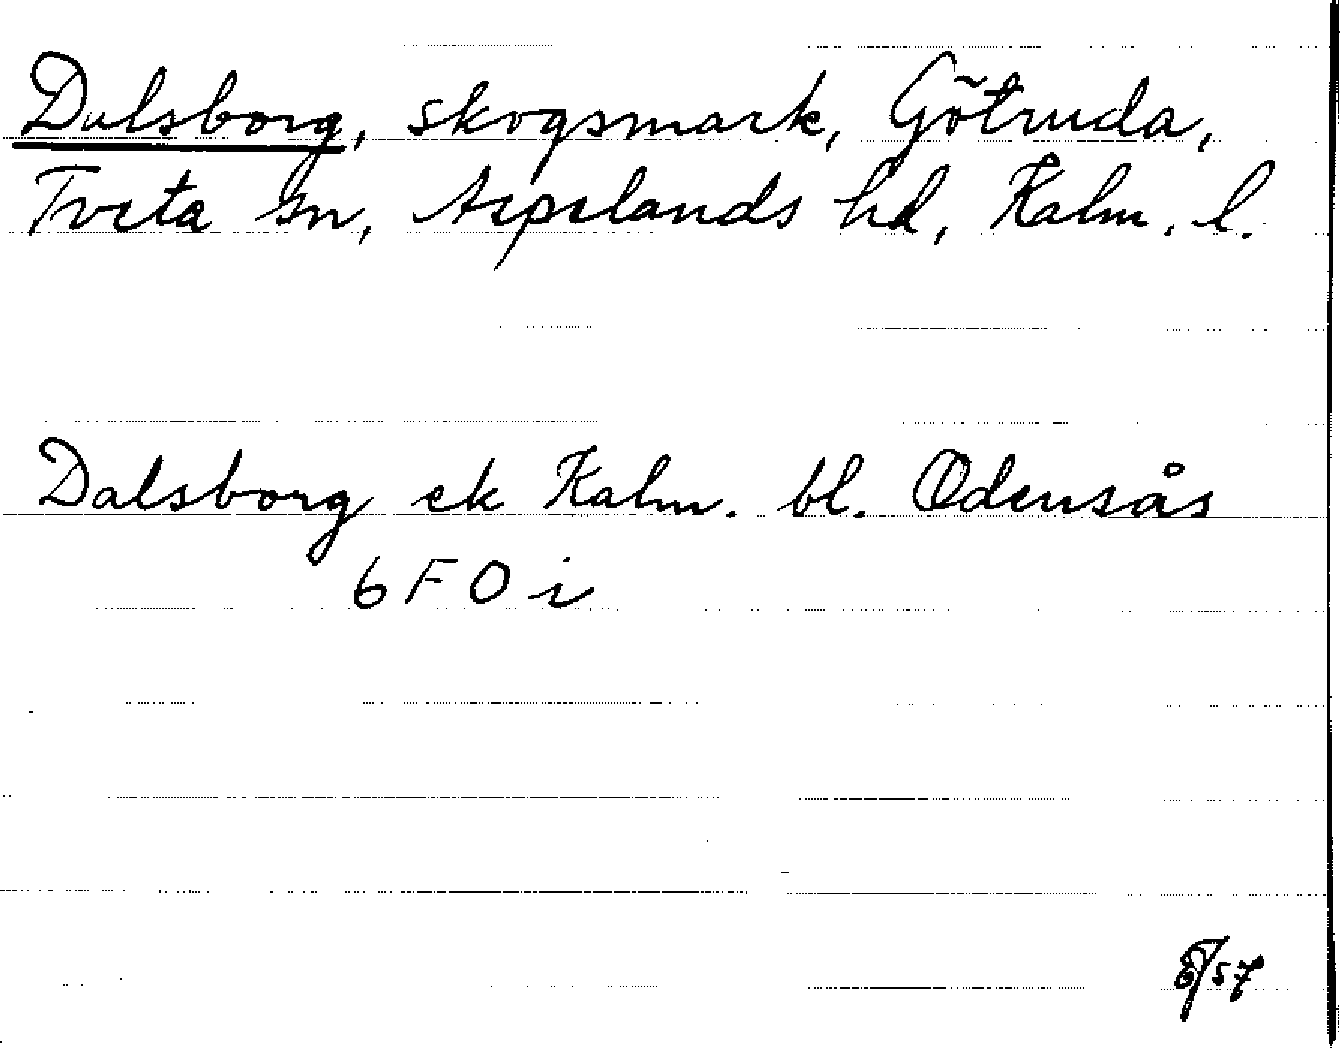 Dalsborg, skogsmark, Götruda,
Tveta sn, Aspelands hd, Kalm. l.
Dalsborg ek Kalm. bl. Odensås
6 F O i
/57